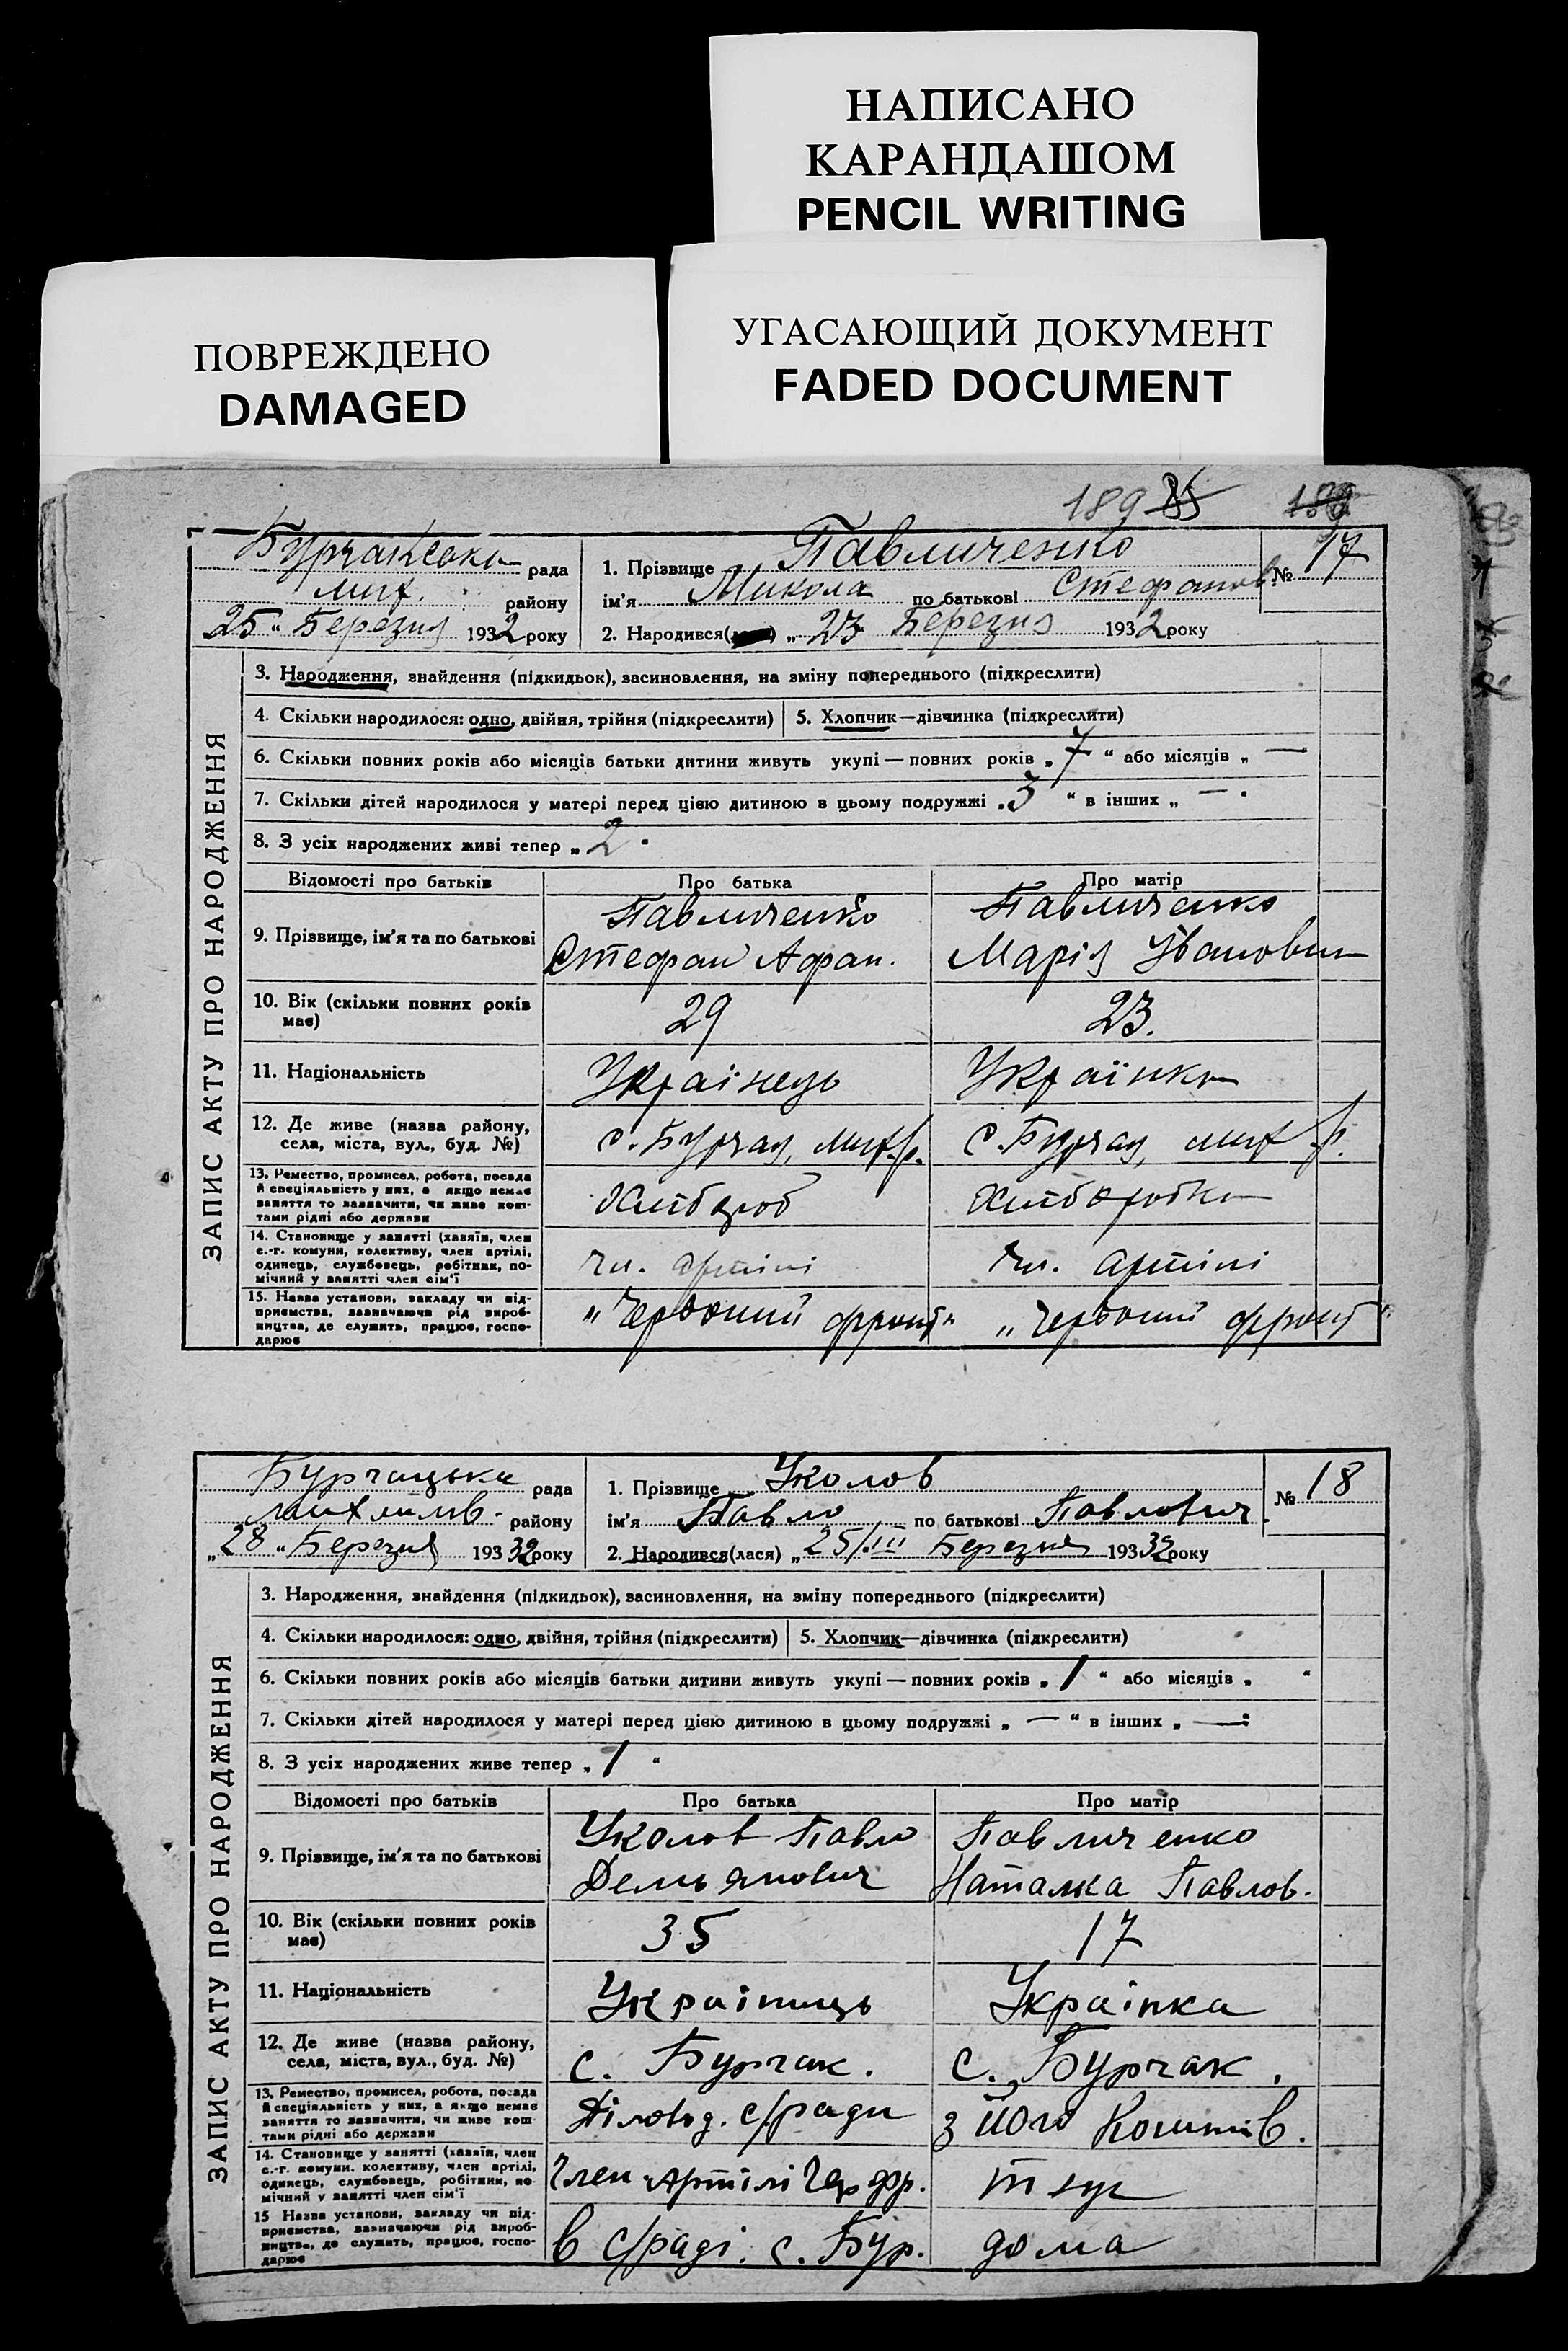 НАПИСАНО
КАРАНДАШОМ
PENCIL WRITING
ПОВРЕЖДЕНО
DAMAGED
УГАСАЮЩИЙ ДОКУМЕНТ
FADED DOCUMENT
189 85 189
ЗАПИС АКТУ ПРО НАРОДЖЕННЯ
рада
Мих. району
25 " Березня 1932 року
1. Прізвище Павличенко № 17
ім'я Микола по батькові Стефанов
2. Народився( ) „ 23 Березня 1932 року
3. Народження, знайдення (підкидьок), засиновлення, на зміну попереднього (підкреслити)
4. Скільки народилося: одно, двійня, трійня (підкреслити) 5. Хлопчик—дівчинка (підкреслити)
6. Скільки повних років або місяців батьки дитини живуть укупі — повних років „ 7 “ або місяців „ —
7. Скільки дітей народилося у матері перед цією дитиною в цьому подружжі „ 3 “ в інших „ —
8. З усіх народжених живі тепер „ 2 “
Відомості про батьків Про батька Про матір
9. Прізвище, ім'я та по батькові
Павличенко Павличенко
Стефан Афан. Марія Івановна
10. Вік (скільки повних років має) 29 23.
11. Національність Українець Українка
12. Де живе (назва району, села, міста, вул., буд. №)
с. Бурчак, Мих. р. с. Бурчак, Мих р.
13. Ремество, промисел, робота, посада й спеціяльність у них, а якщо немає заняття то зазначити, чи живе коштами рідні або держави
Хлібороб Хліборобка
14. Становище у занятті (хазяїн, член с.-г. комуни, колективу, член артілі, одинець, службовець, робітник, помічний у занятті член сім'ї
Чл. артілі Чл. артілі
15. Назва установи, закладу чи підприємства, зазначаючи рід виробництва, де служить, працює, господарює
„Червоний фронт“ „Червоний фронт“
ЗАПИС АКТУ ПРО НАРОДЖЕННЯ
Бурчацька рада
району
„ 28 “ Березня 193 32 року
1. Прізвище Уколов № 18
ім'я Павло по батькові Павлович.
2. Народився(лася) „ 25/III Березня 193 32 року
3. Народження, знайдення (підкидьок), засиновлення, на зміну попереднього (підкреслити)
4. Скільки народилося: одно, двійня, трійня (підкреслити) 5. Хлопчик—дівчинка (підкреслити)
6. Скільки повних років або місяців батьки дитини живуть укупі — повних років „ 1 “ або місяців „ “
7. Скільки дітей народилося у матері перед цією дитиною в цьому подружжі „ — “ в інших „ — “
8. З усіх народжених живе тепер „ 1 “
Відомості про батьків Про батька Про матір
9. Прізвище, ім'я та по батькові
Уколов Павло Павличенко
Демьянович Наталка Павлов.
10. Вік (скільки повних років має) 35 17
11. Національність Українець Українка
12. Де живе (назва району, села, міста, вул., буд. №)
с. Бурчак. с. Бурчак.
13. Ремество, промисел, робота, посада й спеціяльність у них, а якщо немає заняття то зазначити, чи живе коштами рідні або держави
Діловод. с/ради з його коштів.
14. Становище у занятті (хазяїн, член с.-г. комуни. колективу, член артілі, одинець, службовець, робітник, помічний у занятті член сім'ї
Член Артілі Чер фр.
15 Назва установи, закладу чи підприємства, зазначаючи рід виробництва, де служить, працює, господарює
в с/раді. с. Бур. дома